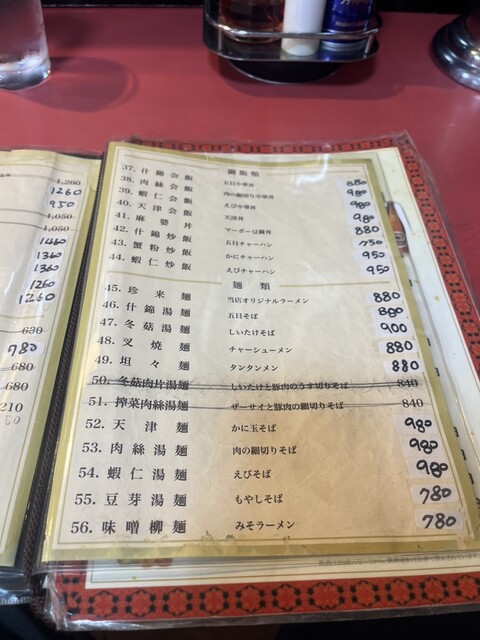 1,200
1260
950
1,050
1,050
1460
1360
1360
1260
1260
630
780
680
680
210
鍋飯類
37. 什錦会飯 五目中華丼 880
38. 肉絲会飯 肉の細切り中華丼 980
39. 蝦仁会飯 えび中華丼 980
40. 天津会飯 天津丼 980
41. 麻婆丼 マーボー豆腐丼 880
42. 什錦炒飯 五目チャーハン 750
43. 蟹粉炒飯 かにチャーハン 950
44. 蝦仁炒飯 えびチャーハン 950
麺類
45. 珍来麺 当店オリジナルラーメン 880
46. 什錦湯麺 五目そば 880
47. 冬菇湯麺 しいたけそば 900
48. 叉焼麺 チャーシューメン 880
49. 坦々麺 タンタンメン 880
50. 冬菇肉片湯麺 しいたけと豚肉のうす切りそば 840
51. 搾菜肉絲湯麺 ザーサイと豚肉の細切りそば 840
52. 天津麺 かに玉そば 980
53. 肉絲湯麺 肉の細切りそば 980
54. 蝦仁湯麺 えびそば 980
55. 豆芽湯麺 もやしそば 780
56. 味噌柳麺 みそラーメン 780